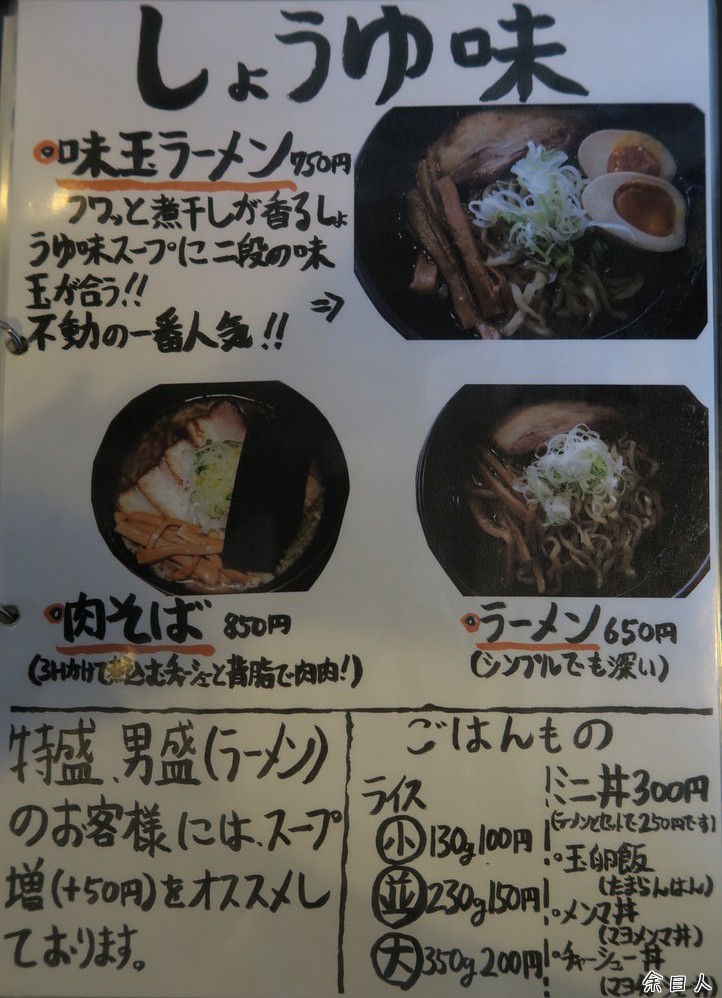 しょうゆ味
味玉ラーメン 750円
フワッと煮干しが香るしょ
うゆ味スープに二段の味
玉が合う!!
不動の一番人気!!
⇒
肉そば 850円
(3Hかけて煮込むチャーシューと背脂で肉肉!)
ラーメン 650円
(シンプルでも深い)
特盛、男盛(ラーメン)
のお客様には、スープ
増(+50円)をオススメし
ております。
ごはんもの
ライス
小 130g 100円
並 230g 150円
大 350g 200円
ミニ丼 300円
(ラーメンとセットで250円です)
玉卵飯
(たまらんはん)
メンマ丼
(マヨメンマ丼)
チャーシュー丼
余目人